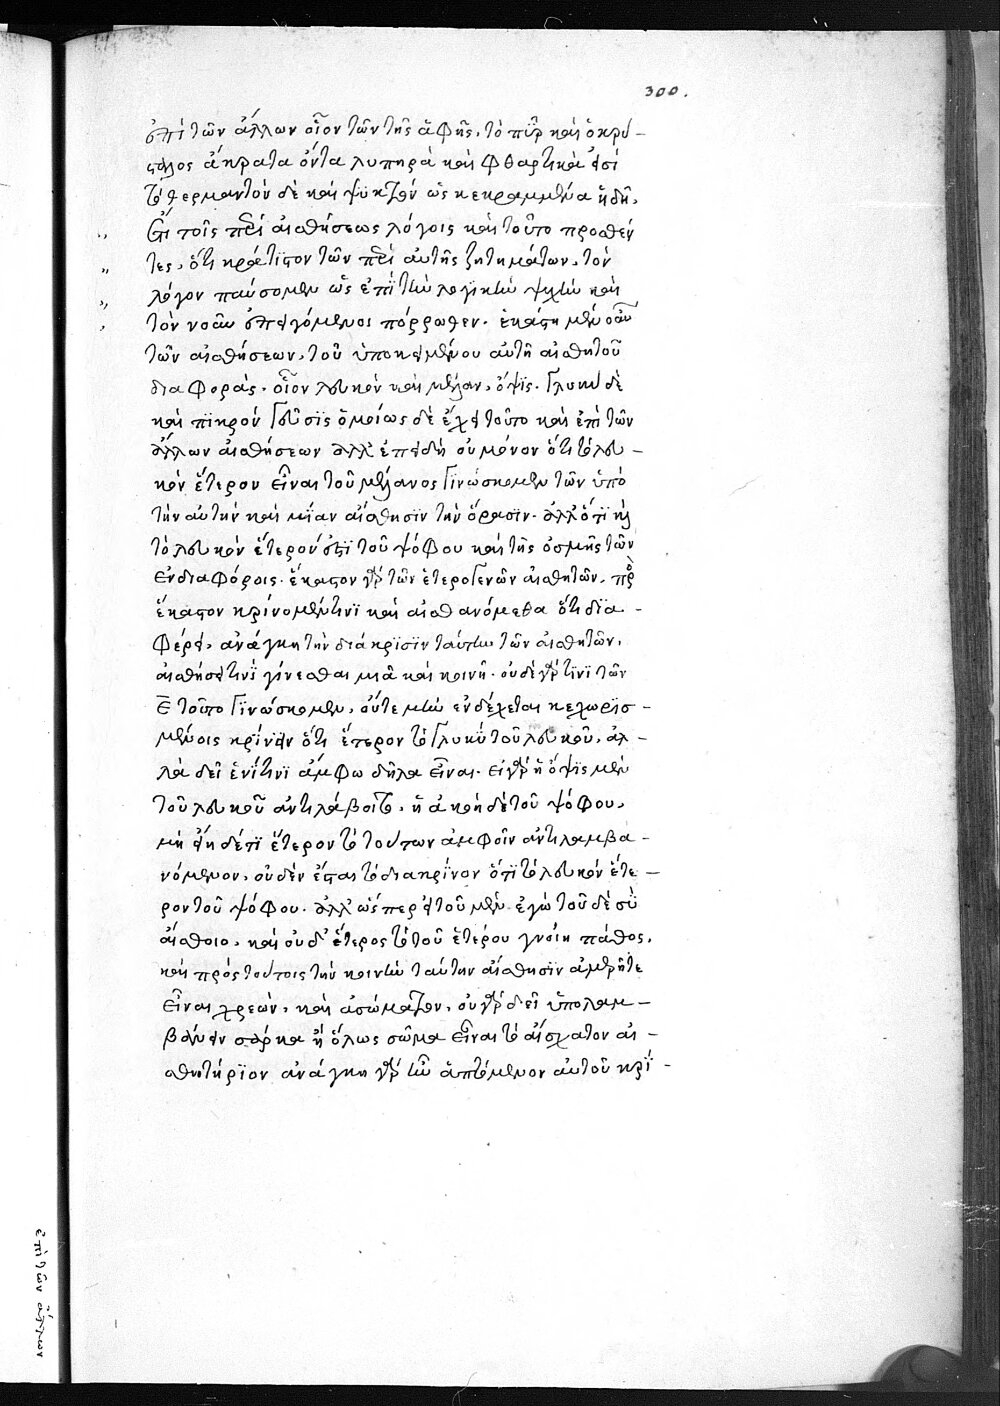 300.
ἐπὶ τῶν ἄλλων οἷον τῶν τῆς ἁφῆς, τὸ πῦρ καὶ ὁ κρύ-
σταλος ἄκρατα ὄντα λυπηρὰ καὶ φθαρτικά εἰσι
τὸ θερμαντὸν δὲ καὶ ψυκτὸν ὡς κεκραμμένα ἡδῆ.
Ἔτι τοῖς περὶ αἰσθήσεως λόγοις καὶ τοῦτο προσθέν
τες, ὅτι κράτιστον τῶν περὶ αὐτῆς ζητημάτων, τὸν
λόγον παύσομεν ὡς ἐπὶ τὴν λογικὴν ψυχὴν καὶ
τὸν νοῦν ἐπειγόμενος πόρρωθεν. ἑκάστη μὲν οὖν
τῶν αἰσθήσεων, τοῦ ὑποκειμένου αὐτῆ αἰσθητοῦ
διαφοράς. οἷον λευκὸν καὶ μέλαν, ὄψις. γλυκὺ δὲ
καὶ πικρὸν γεῦσις ὁμοίως δὲ ἔχει τοῦτο καὶ ἐπὶ τῶν
ἄλλων αἰσθήσεων ἀλλ' ἐπειδὴ οὐ μόνον ὅτι τὸ λευ-
κὸν ἕτερον εἶναι τοῦ μέλανος γινώσκομεν τῶν ὑπὸ
τὴν αὐτὴν καὶ μίαν αἴσθησιν τὴν ὅρασιν. ἀλλ' ὅτι καὶ
τὸ λευκὸν ἕτερόν ἐστι τοῦ ψόφου καὶ τῆς ὀσμῆς τῶν
ἐν διαφόροις. ἕκαστον γὰρ τῶν ἑτερογενῶν αἰσθητῶν, πρὸς
ἕκαστον κρίνομέν τινι καὶ αἰσθανόμεθα ὅτι δια-
φέρει, ἀνάγκη τὴν διάκρισιν ταύτην τῶν αἰσθητῶν,
αἰσθήσει τινὶ γίνεσθαι μιᾶ καὶ κοινῆ. οὐδὲ γάρ τινι τῶν
ε̄ τοῦτο γινώσκομεν, οὔτε μὴν ἐνδέχεται κεχωρισ-
μένοις κρίνειν ὅτι ἕτερον τὸ γλυκὺ τοῦ λευκοῦ, ἀλ-
λὰ δεῖ ἑνί τινι ἄμφω δῆλα εἶναι. εἰ γὰρ ἡ ὄψις μὲν
τοῦ λευκοῦ ἀντιλάβοιτο, ἡ ἀκοὴ δὲ τοῦ ψόφου,
μὴ εἴη δέ τι ἕτερον τὸ τούτων ἀμφοῖν ἀντιλαμβα-
νόμενον, οὐδὲν ἔσται τὸ διακρῖνον ὅτι τὸ λευκὸν ἕτε-
ρον τοῦ ψόφου. ἀλλ' ὥσπερ εἰ τοῦ μὲν ἐγὼ τοῦ δὲ σὺ
αἴσθοιο, καὶ οὐδ' ἕτερος τὸ τοῦ ἑτέρου γνοίη πάθος,
καὶ πρὸς τούτοις τὴν κοινὴν ταύτην αἴσθησιν ἀμερῆ τε
εἶναι χρεὼν, καὶ ἀσώματον, οὐ γὰρ δεῖ ὑπολαμ-
βάνειν σάρκα ἢ ὅλως σῶμα εἶναι τὸ αἴσχατον αἰ-
σθητήριον ἀνάγκη γὰρ ἦν ἁπτόμενον αὐτοῦ κρί-
ἐπὶ τῶν ἄλλων